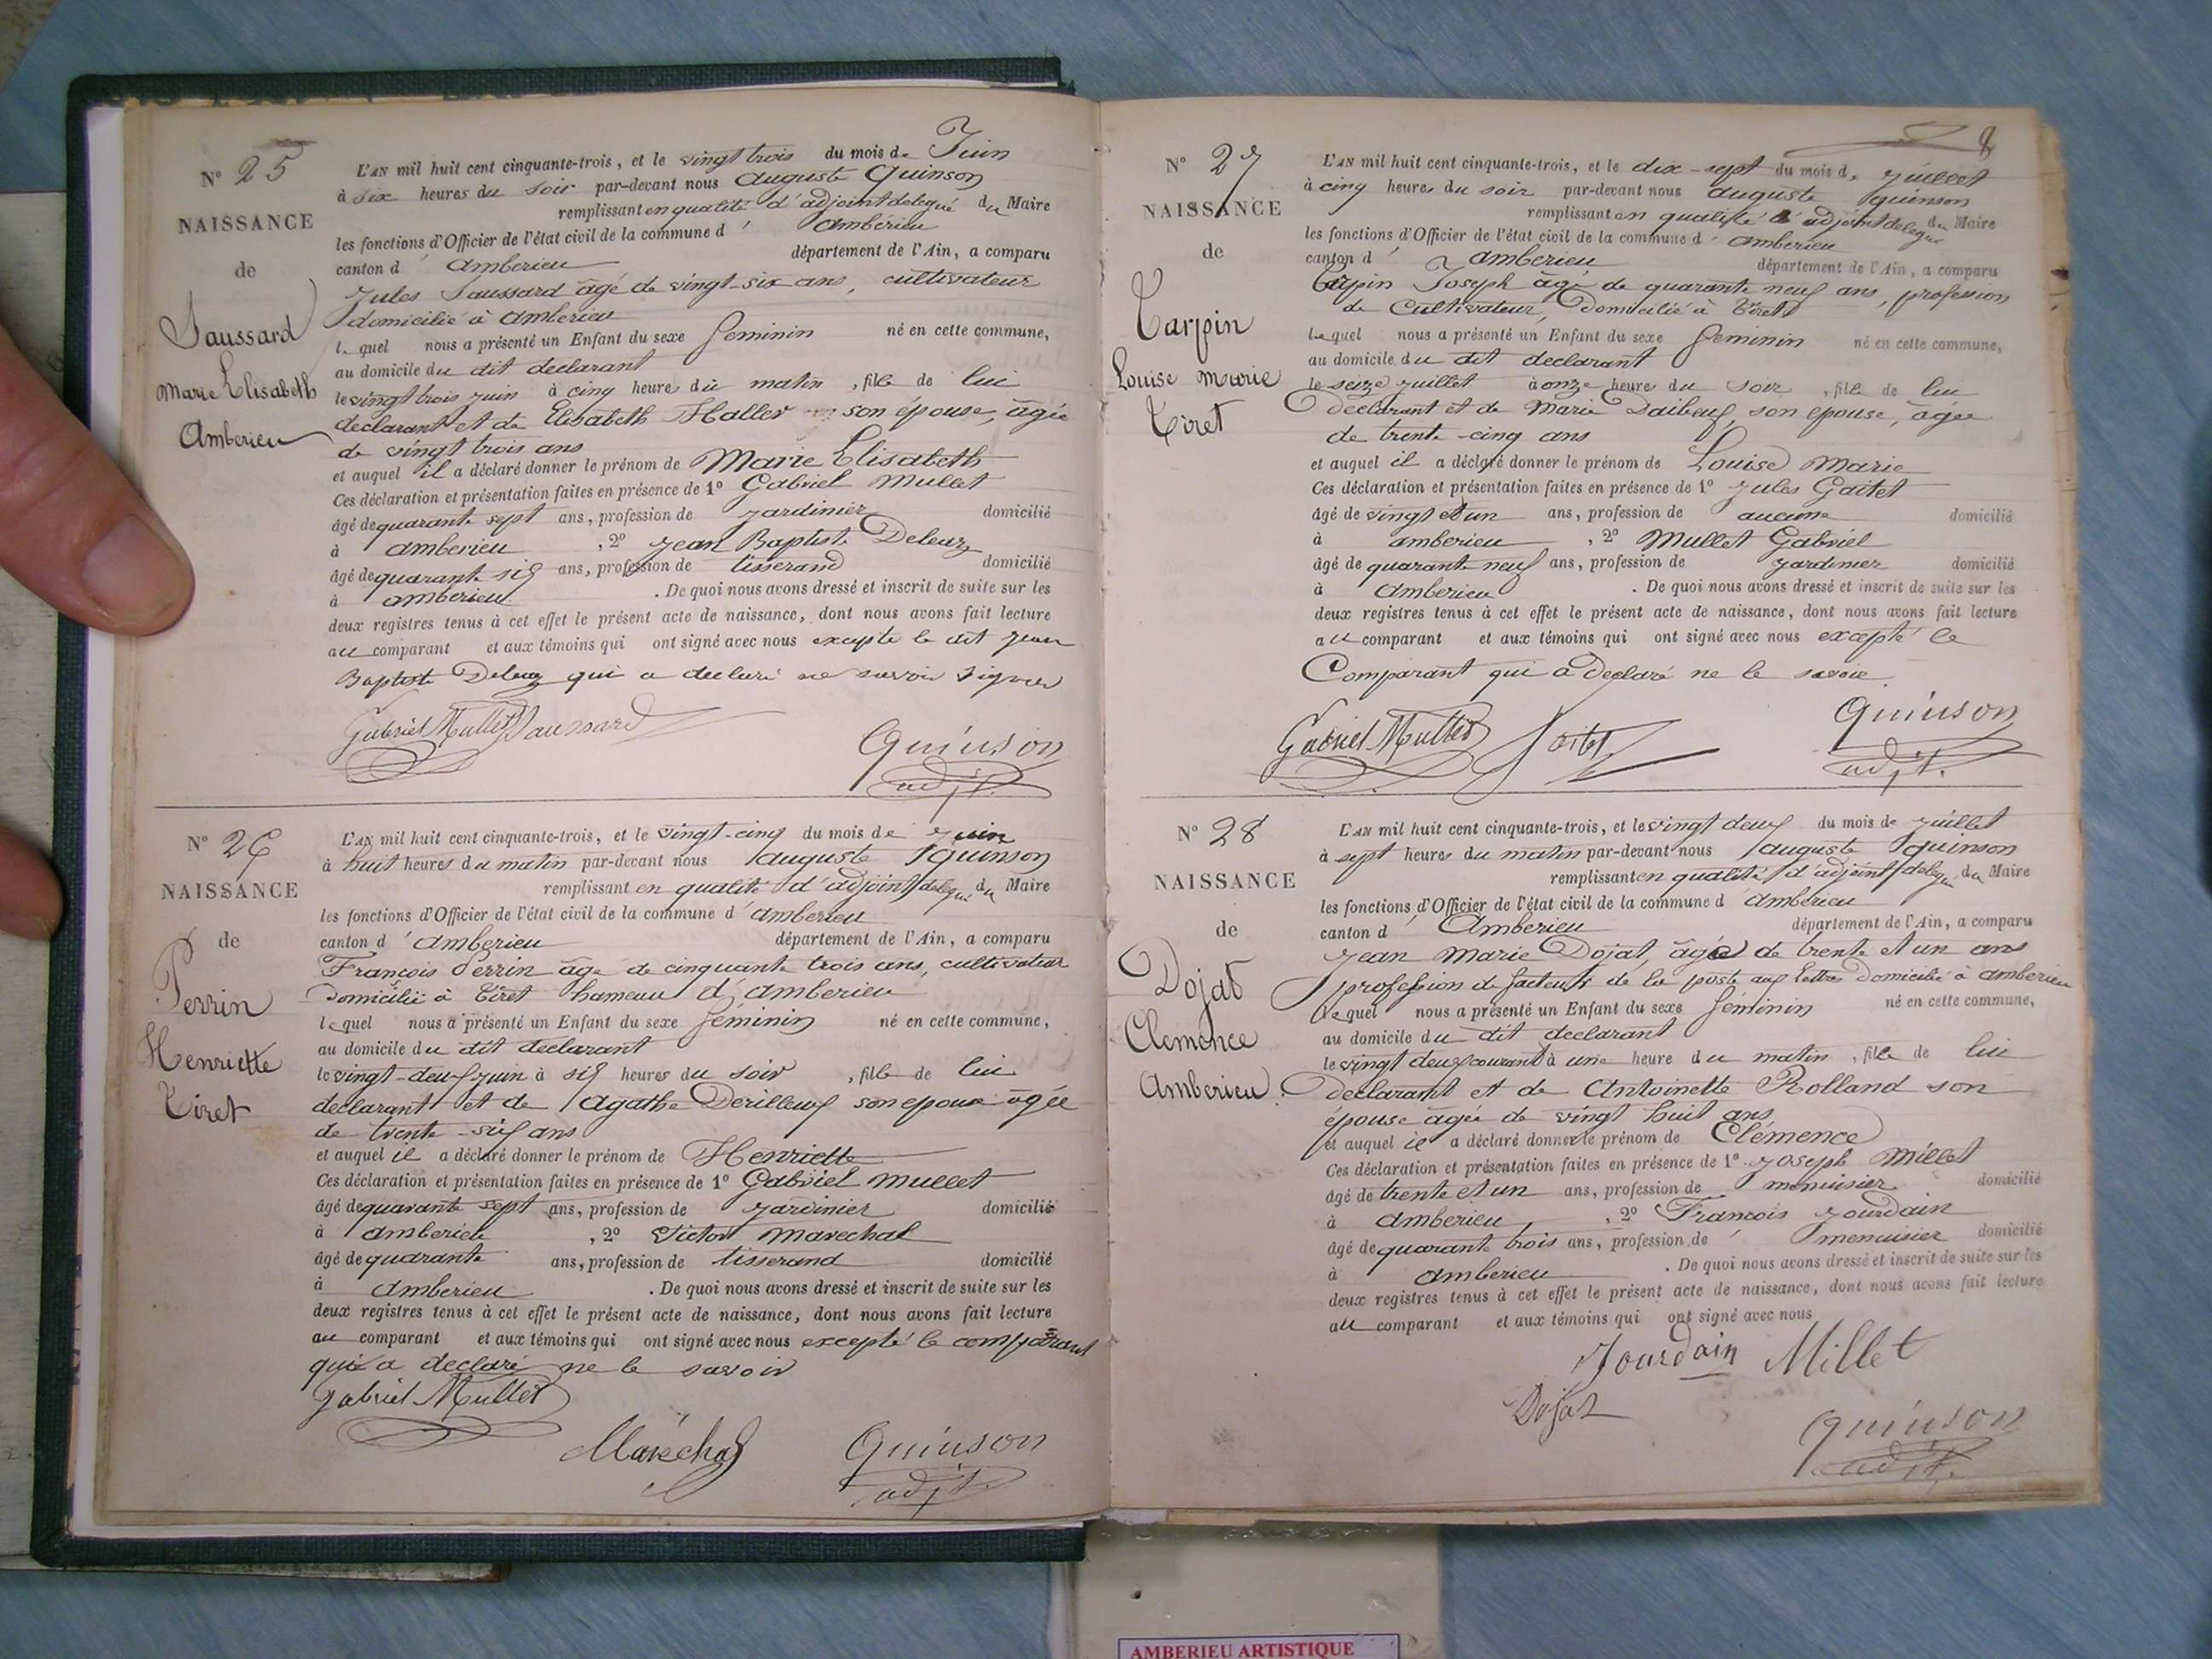 N° 25
NAISSANCE
de
Saussard
Marie Elisabeth
Amberieu
L'AN mil huit cent cinquante-trois, et le vingt trois du mois de Juin
à six heures du soir par-devant nous Auguste Quinson
remplissant en qualité d'adjoint delegué du Maire
les fonctions d'Officier de l'état civil de la commune d' Amberieu
canton d' Amberieu département de l'Ain, a comparu
Jules Saussard âgé de vingt-six ans, cultivateur
domicilié à Amberieu
lequel nous a présenté un Enfant du sexe feminin né en cette commune,
au domicile du dit declarant
le vingt trois juin à cinq heures du matin, fille de lui
declarant et de Elisabeth Haller son épouse, âgée
de vingt trois ans
et auquel il a déclaré donner le prénom de Marie Elisabeth
Ces déclaration et présentation faites en présence de 1° Gabriel Mullet
âgé de quarante sept ans, profession de jardinier domicilié
à amberieu, 2° Jean Baptiste Deleaz
âgé de quarante six ans, profession de tisserand domicilié
à amberieu. De quoi nous avons dressé et inscrit de suite sur les
deux registres tenus à cet effet le présent acte de naissance, dont nous avons fait lecture
au comparant et aux témoins qui ont signé avec nous excepte le dit jean
Baptiste Deleaz qui a declaré ne savoir signer
Gabriel Mullet Saussard
Quinson
adjt.
N° 26
NAISSANCE
de
Perrin
Henriette
Tiret
L'AN mil huit cent cinquante-trois, et le vingt-cinq du mois de juin
à huit heures du matin par-devant nous auguste quinson
remplissant en qualité d'adjoint delegué du Maire
les fonctions d'Officier de l'état civil de la commune d' amberieu
canton d' amberieu département de l'Ain, a comparu
François Perrin âgé de cinquante trois ans, cultivateur
Domicilié à Tiret hameau d'amberieu
lequel nous a présenté un Enfant du sexe féminin né en cette commune,
au domicile du dit declarant
le vingt-deux juin à six heures du soir, fille de lui
declarant et de agathe Derilleux son epouse agée
de trente-six ans
et auquel il a déclaré donner le prénom de Henriette
Ces déclaration et présentation faites en présence de 1° Gabriel mullet
âgé de quarante sept ans, profession de jardinier domicilié
à amberieu, 2° Victor marechal
âgé de quarante ans, profession de tisserand domicilié
à amberieu. De quoi nous avons dressé et inscrit de suite sur les
deux registres tenus à cet effet le présent acte de naissance, dont nous avons fait lecture
au comparant et aux témoins qui ont signé avec nous excepté le comparant
qui a declaré ne le savoir
Gabriel Mullet
Maréchal
Quinson
adjt.
8
N° 27
NAISSANCE
de
Tarpin
Louise marie
Tiret
L'AN mil huit cent cinquante-trois, et le dix-sept du mois de juillet
à cinq heures du soir par-devant nous auguste quinson
remplissant en qualité d'adjoint delegué du Maire
les fonctions d'Officier de l'état civil de la commune d' amberieu
canton d' amberieu département de l'Ain, a comparu
Tarpin Joseph âgé de quarante neuf ans, profession
de Cultivateur, Domicilié à Tiret
lequel nous a présenté un Enfant du sexe feminin né en cette commune,
au domicile du dit declarant
le seize juillet à onze heure du soir, fille de lui
Declarant et de Marie Daibeuf, son epouse, âgée
de trente-cinq ans
et auquel il a déclaré donner le prénom de Louise Marie
Ces déclaration et présentation faites en présence de 1° Jules Gaitet
âgé de vingt et un ans, profession de aucune domicilié
à amberieu, 2° Mullet Gabriel
âgé de quarante neuf ans, profession de jardinier domicilié
à amberieu. De quoi nous avons dressé et inscrit de suite sur les
deux registres tenus à cet effet le présent acte de naissance, dont nous avons fait lecture
au comparant et aux témoins qui ont signé avec nous excepté le
Comparant qui a Declaré ne le savoir
Gabriel Mullet
Quinson
adjt.
N° 28
NAISSANCE
de
Dojat
Clemence
Amberieu
L'AN mil huit cent cinquante-trois, et le vingt deux du mois de juillet
à sept heures du matin par-devant nous auguste quinson
remplissant en qualité d'adjoint delegué du Maire
les fonctions d'Officier de l'état civil de la commune d' amberieu
canton d' Amberieu département de l'Ain, a comparu
jean Marie Dojat, âgé de trente et un ans
profession de facteur de la poste aux lettres Domicilié à amberieu
lequel nous a présenté un Enfant du sexe féminin né en cette commune,
au domicile du dit declarant
le vingt deux courant à une heure du matin, fille de lui
Declarant et de Antoinette Rolland son
épouse agée de vingt huit ans
et auquel il a déclaré donner le prénom de Clémence
Ces déclaration et présentation faites en présence de 1° Joseph Millet
âgé de trente et un ans, profession de menuisier domicilié
à amberieu, 2° Francois Jourdain
âgé de quarante trois ans, profession de menuisier domicilié
à amberieu. De quoi nous avons dressé et inscrit de suite sur les
deux registres tenus à cet effet le présent acte de naissance, dont nous avons fait lecture
au comparant et aux témoins qui ont signé avec nous
Jourdain Millet
Dojat
quinson
adjt.
AMBERIEU ARTISTIQUE